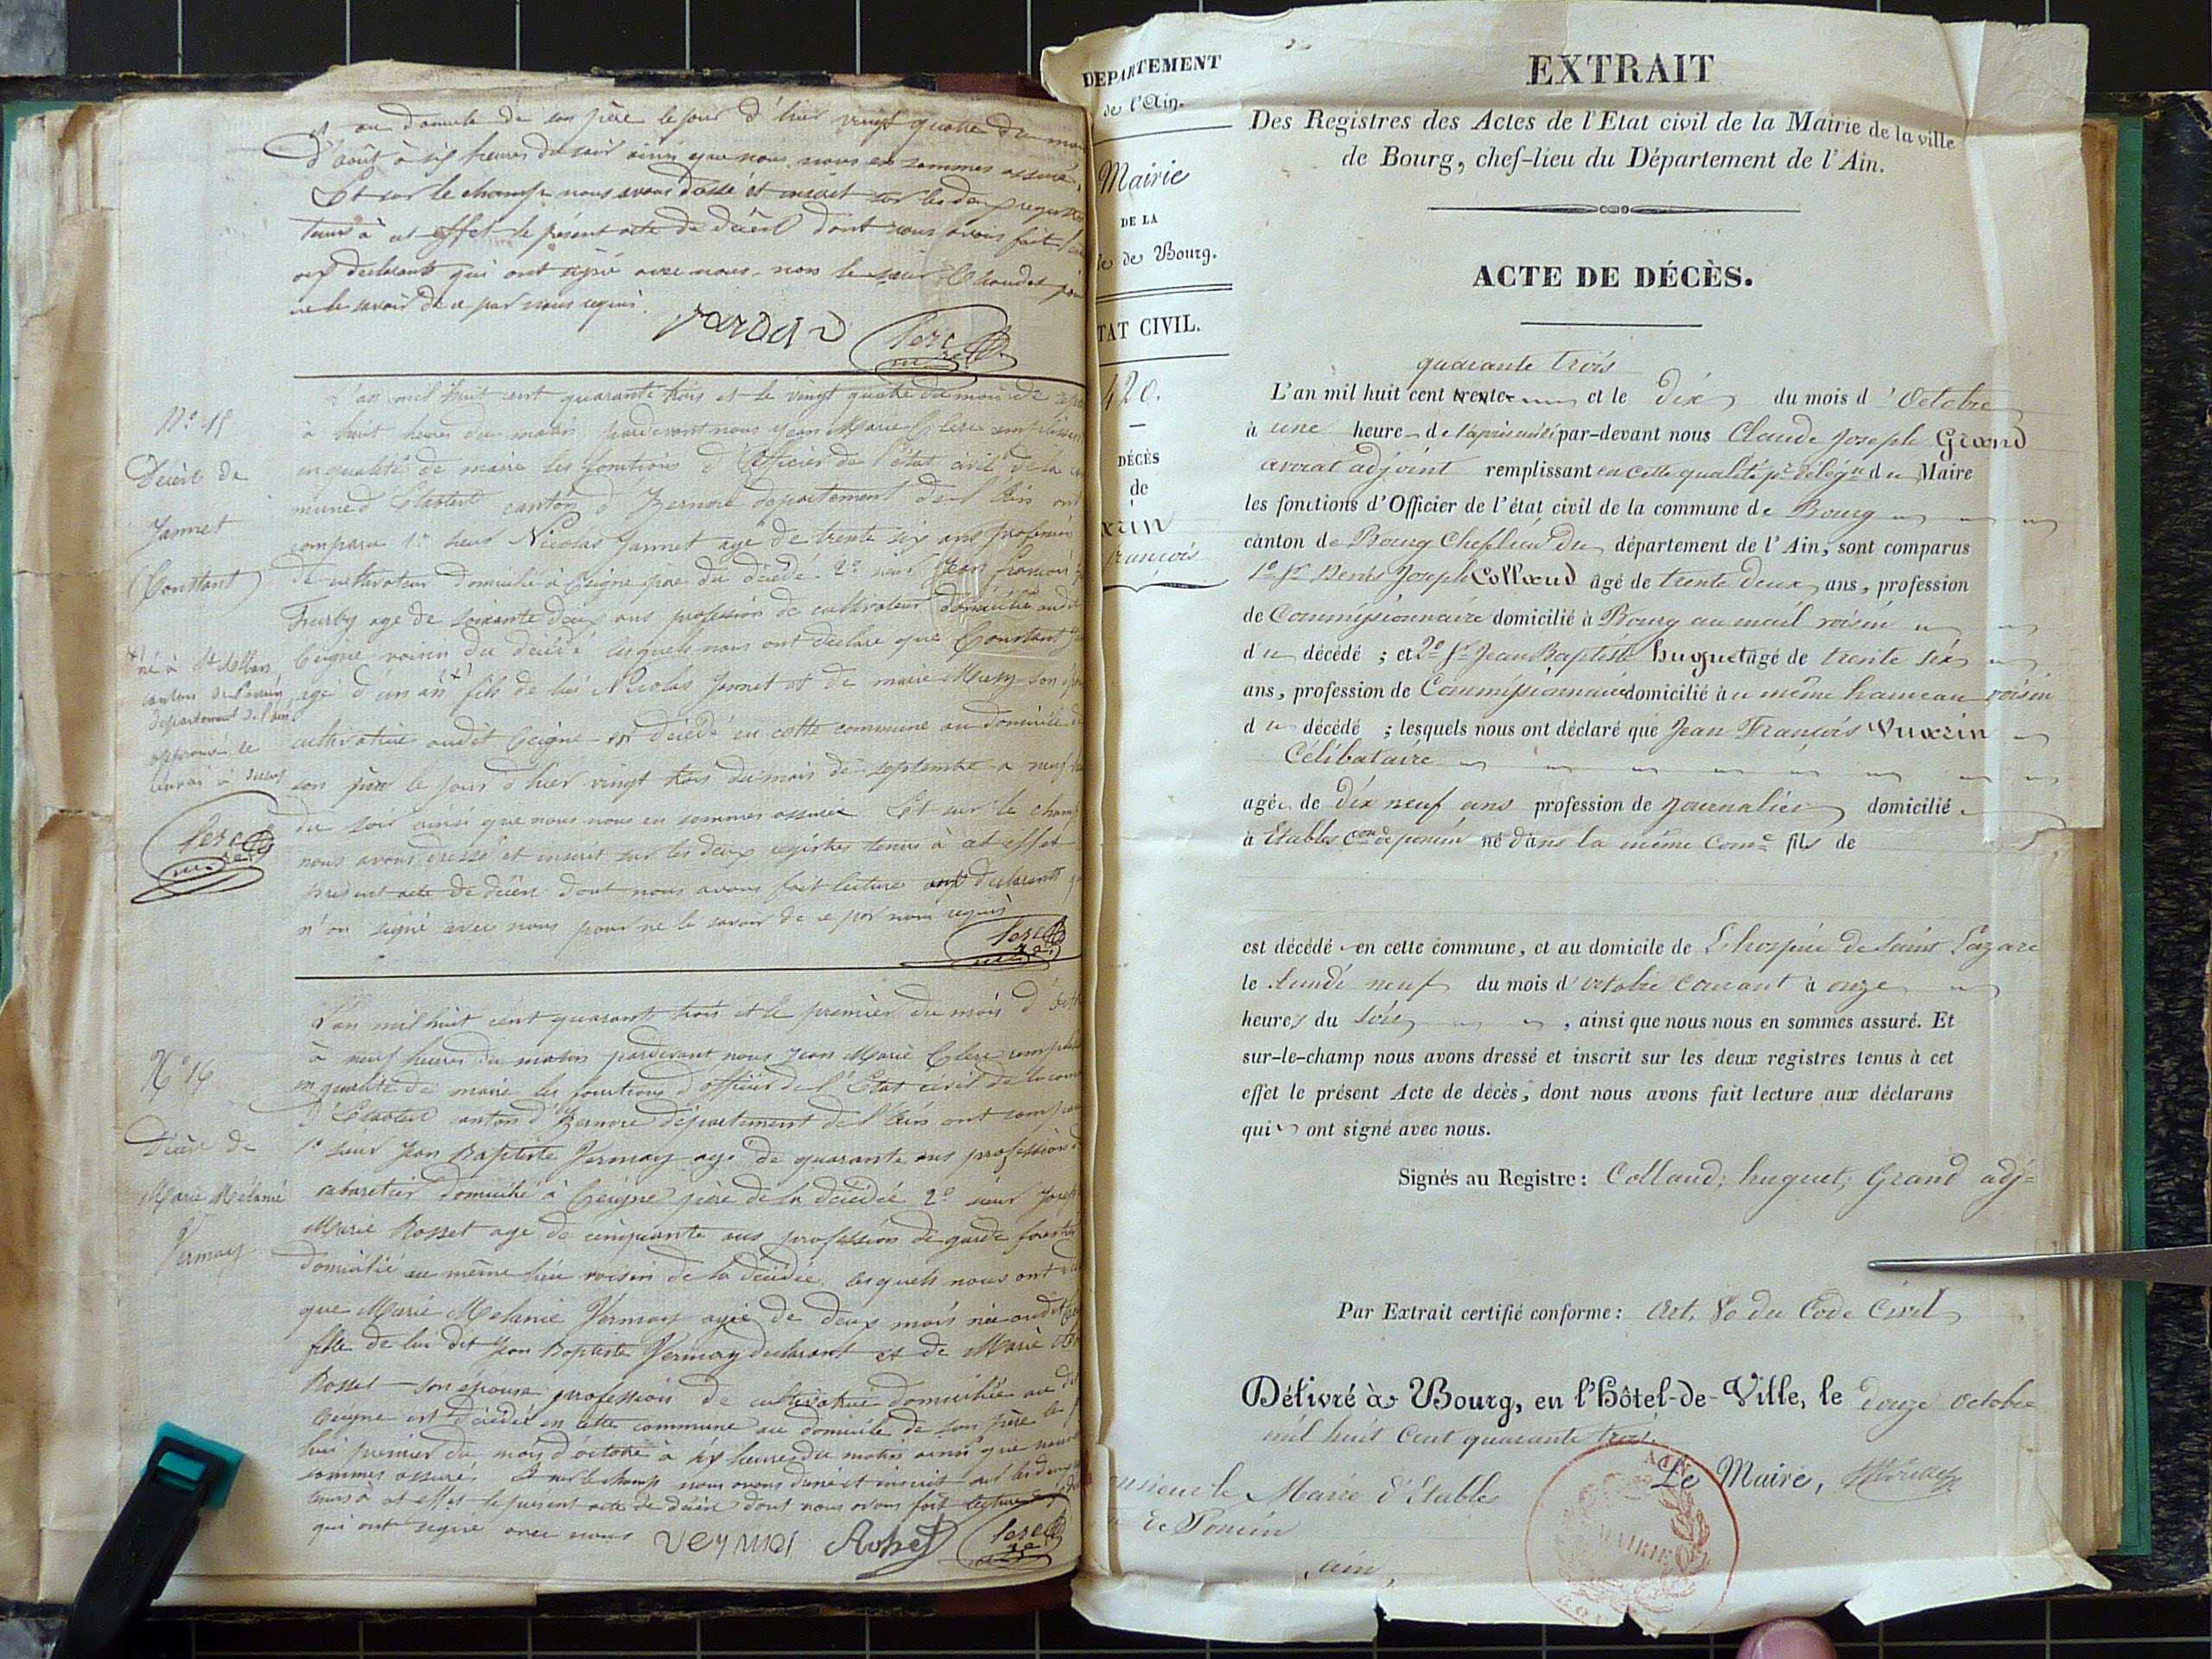 et au domicile de son père le jour d'hier vingt quatre du mois
d'août à six heures du soir ainsi que nous nous en sommes assuré.
Et sur le champ nous avons dressé et inscrit sur les deux registres
tenus à cet effet le présent acte de décès dont nous avons fait
aux déclarants qui ont signé avec nous, non le sieur
ne le savoir de ce par nous requis.
Clerc
L'an mil huit cent quarante trois et le vingt quatre du mois de
N° 15
à huit heures du matin pardevant nous Jean Marie Clerc remplissant
Décès de
en qualité de maire les fonctions d'officier de l'état civil de la
Jannet
mune d' canton d'Izernore département de l'Ain ont
comparu 1° sieur Nicolas Jannet agé de trente six ans profession
Constant
de cultivateur domicilié à Ceigne père du décédé 2° sieur Jean françois
Furby agé de soixante deux ans profession de cultivateur domicilié audit
Ceigne voisin du décédé lesquels nous ont déclaré que Constant
né à St Alban
canton de Poncin
département de l'Ain
approuvé le
renvoi à
agé d'un an fils de lui Nicolas Jannet et de marie son
cultivatrice audit Ceigne est décédé en cette commune au domicile de
son père le jour d'hier vingt trois du mois de septembre a neuf
du soir ainsi que nous nous en sommes assuré Et sur le champ
Clerc
nous avons dressé et inscrit sur les deux régistres tenus à cet effet
présent acte de décès dont nous avons fait lecture aux déclarants
n'on signé avec nous pour ne le savoir de ce par nous requis
Clerc
L'an mil huit cent quarante trois et le premier du mois d'
N° 16
à neuf heures du matin pardevant nous Jean Marie Clerc
en qualité de maire les fonctions d'officier de l'Etat civil de la
d' canton d'Izernore département de l'Ain ont
Décès de
1° sieur Jean Baptiste Vermay agé de quarante ans profession
Marie Mélanie
cabaretier domicilié à Ceigne père de la décédée 2° sieur
Vermay
Marie Rosset agé de cinquante ans profession de garde forestier
domicilié au même lieu voisin de la décédée lesquels nous ont
que Marie Melanie Vermay agée de deux mois née audit
fille de lui dit Jean Baptiste Vermay déclarant et de Marie
Rosset son épouse profession de cultivatrice domiciliée au dit
Ceigne est décédée en cette commune au domicile de son père le
hui premier du mois d'octobre à six heures du matin ainsi que nous
sommes assuré. Et sur le champ nous avons dressé et inscrit sur les deux
tenus à cet effet le présent acte de décès dont nous avons fait lecture
qui ont signé avec nous
Clerc
DEPARTEMENT
de l'Ain.
Mairie
DE LA
de Bourg.
TAT CIVIL.
420.
DÉCÈS
de
françois
EXTRAIT
Des Registres des Actes de l'Etat civil de la Mairie de la ville
de Bourg, chef-lieu du Département de l'Ain.
ACTE DE DÉCÈS.
quarante trois
L'an mil huit cent trente et le dix du mois d'Octobre
à une heure de l'après midi par-devant nous Claude Joseph Grand
avocat adjoint remplissant en cette qualité pr délégon du Maire
les fonctions d'Officier de l'état civil de la commune de Bourg
canton de Bourg Cheflieu du département de l'Ain, sont comparus
1° Sr Denis Joseph Colloud agé de trente deux ans, profession
de Commissionnaire domicilié à Bourg au mail voisin
du décédé ; et 2° Sr Jean Baptiste huguet agé de trente six
ans, profession de Commissionnaire domicilié au même hameau voisin
du décédé ; lesquels nous ont déclaré que Jean François Vuarin
Célibataire
agé de dix neuf ans profession de Journalier domicilié
à Etables Con de poncin né dans la même Come fils de
est décédé en cette commune, et au domicile de L'hospice de Saint Lazare
le Lundi neuf du mois d'octobre Courant à onze
heures du soir, ainsi que nous nous en sommes assuré. Et
sur-le-champ nous avons dressé et inscrit sur les deux registres tenus à cet
effet le présent Acte de décès, dont nous avons fait lecture aux déclarans
qui ont signé avec nous.
Signés au Registre : Colloud; huguet; Grand adj=
Par Extrait certifié conforme : Art. 80 du Code Civil
Délivré à Bourg, en l'Hôtel-de-Ville, le douze Octobre
mil huit Cent quarante trois.
Le Maire,
le Maire d'Etables
de Poncin
Ain,
AIN
MAIRIE